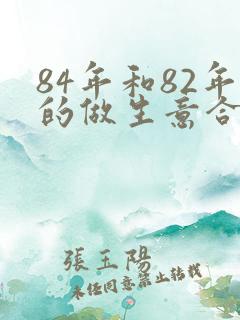 84年和82年
的做生意合
張玉陽
未经同意禁止转载